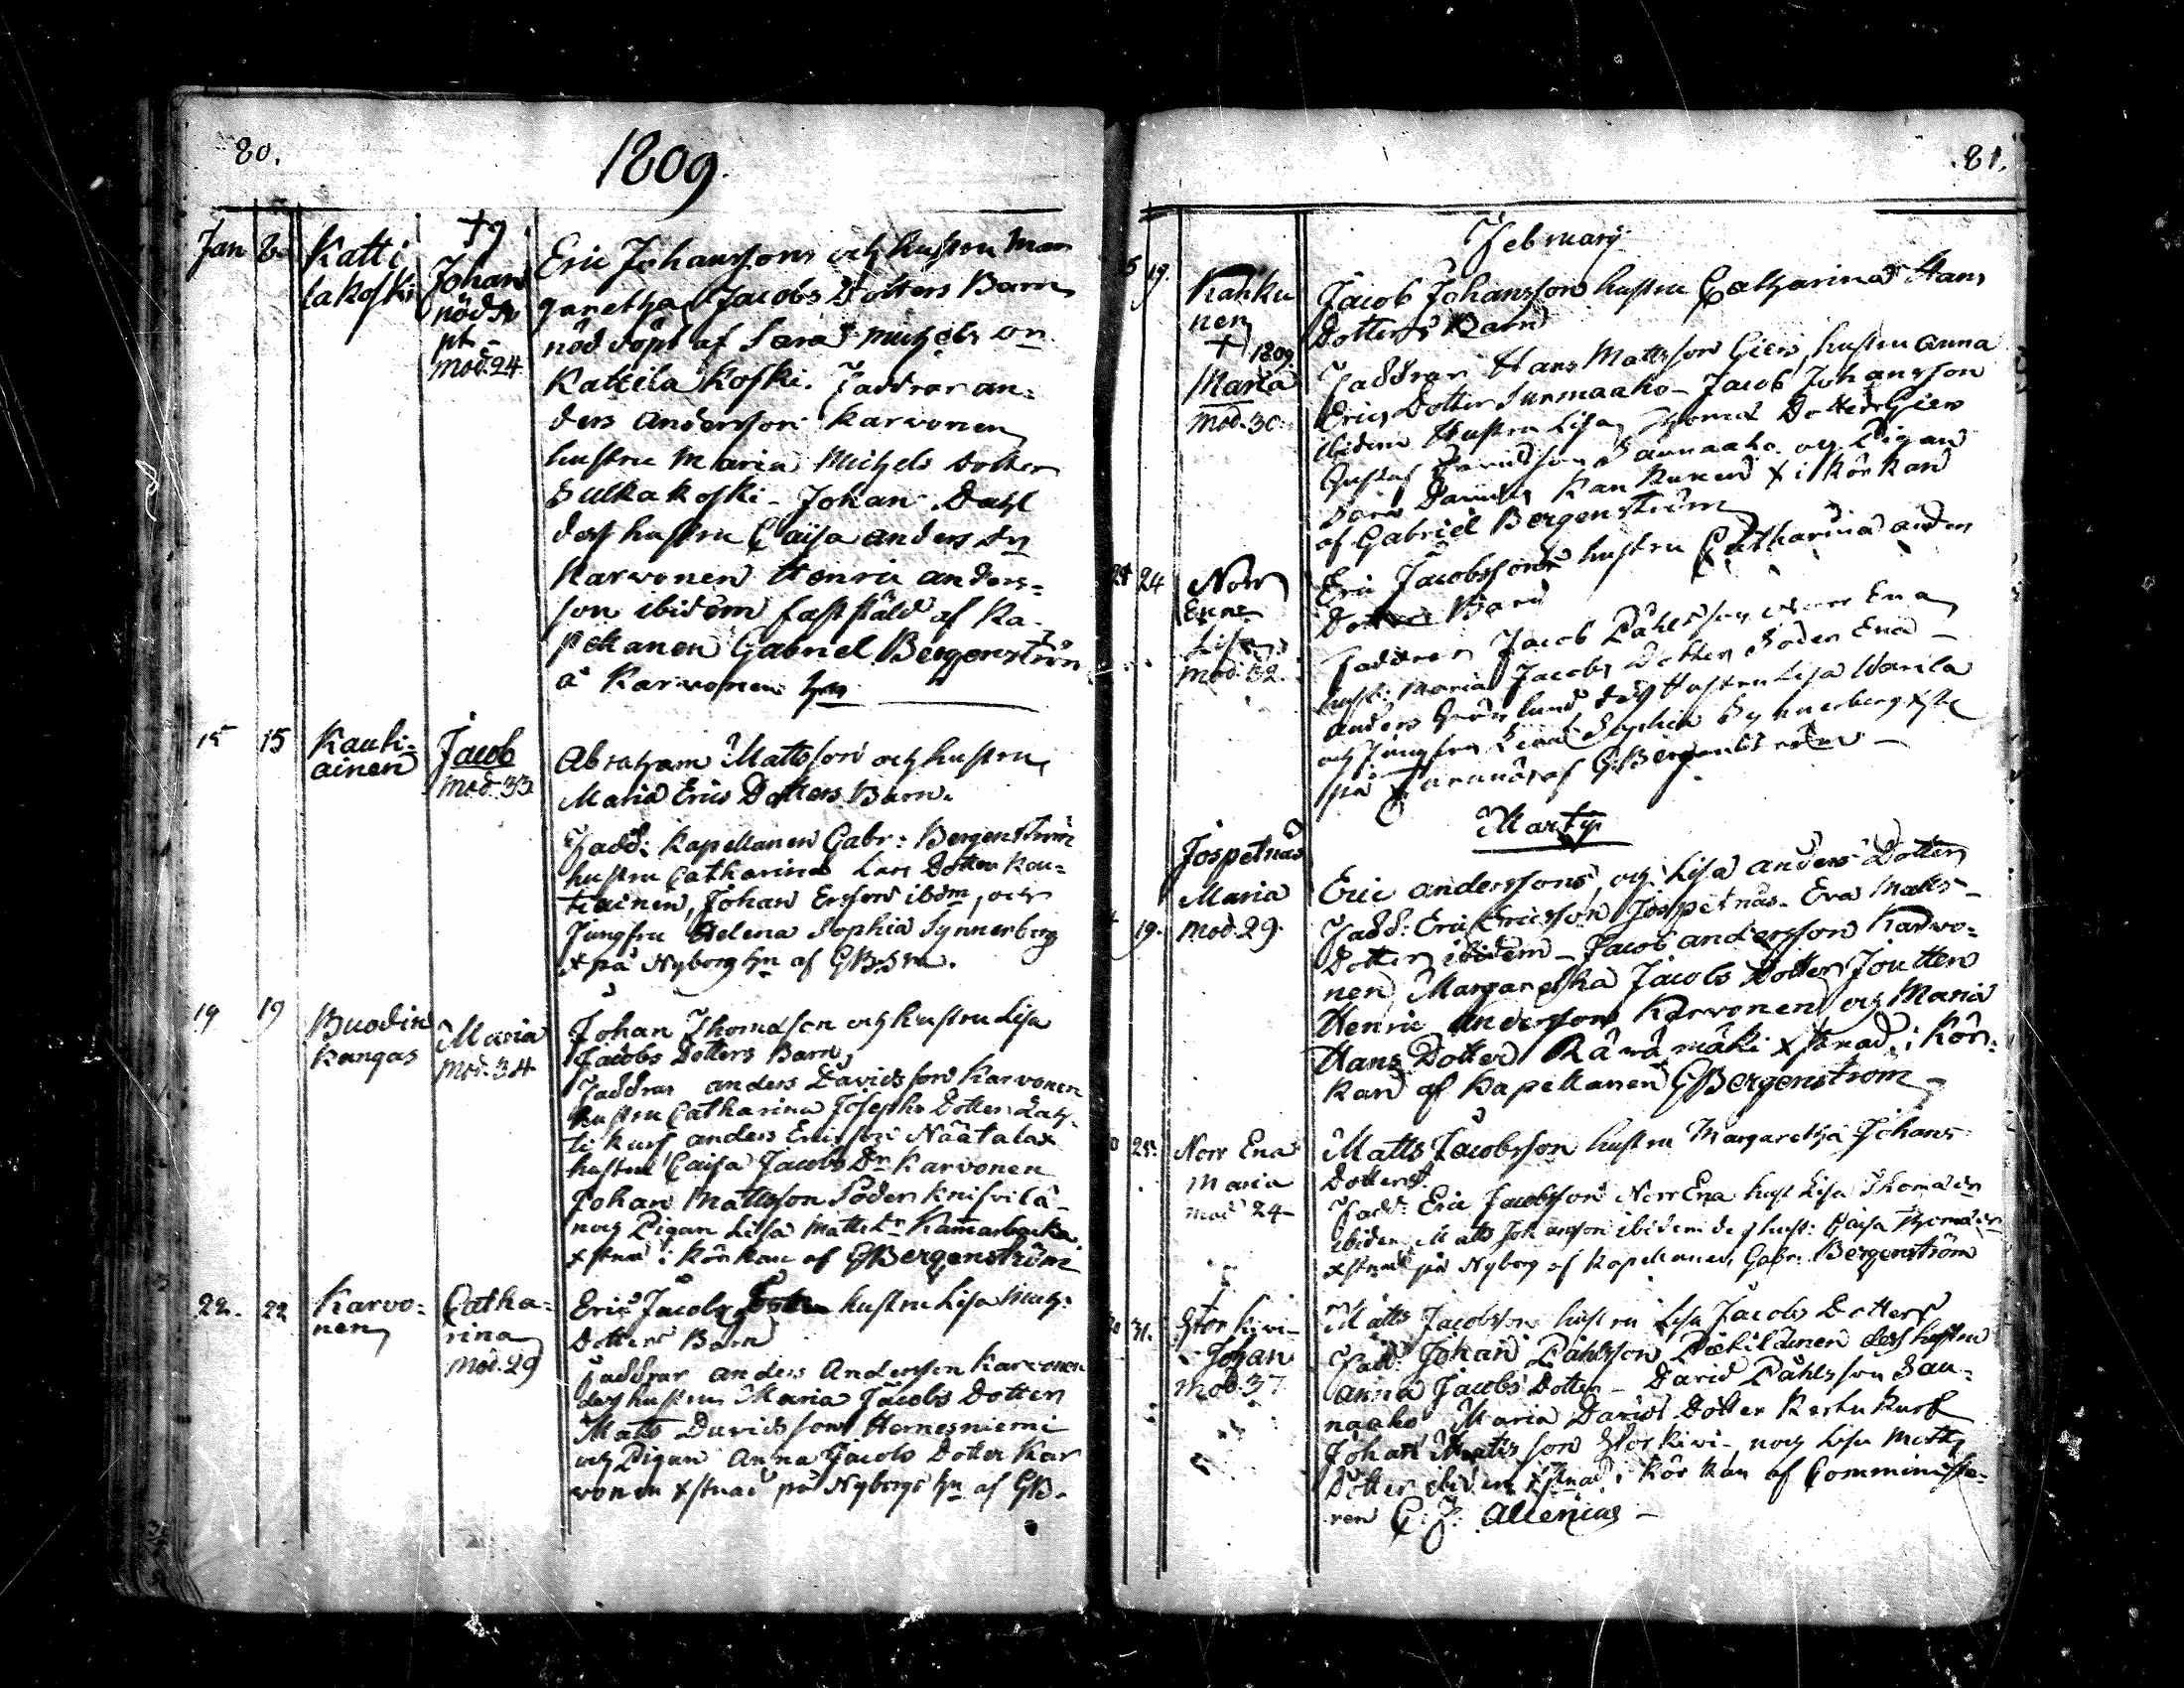 80.
1809.
Jan 8
Katti
lakoski
+9
Johan
nödd
pt
mod. 24
Eric Johanssons och hustru Mar
garetha Jacobs Dotters Barn
nöd döpt af Sara Michels Dn
Kattila Koski. Faddrar an=
ders Andersson Karvonen
hustru Maria Michels Dotter
Sulkakoski - Johan Dahl
dess hustru Caisa anders Dn
Karvonen Henric anders=
son ibidem fastställd af Ka-
pellanen Gabriel Bergenström
å Karvonen hn
15 15
Kauhi-
ainen
Jacob
Mod. 33
Abraham Mattsson och hustru
Maria Erics Dotters Barn.
Fadd: Kapellanen Gabr: Bergenström
hustru Catharina Lars Dotter Kau=
hiainen, Johan Ersson ibdm, och
Jungfru Helena Sophia Synnerberg
x på Nyborg hn af GBSm.
19 19
Buodin
Kangas
Maria
Mod. 34
Johan Thomasson och hustru Lisa
Jacobs Dotters Barn
Faddrar anders Davidsson Karvonen
hustru Catharina Josephs Dotter Lah-
ti Kurf anders Ericsson Näätalax
hustru Caisa Jacobs Dr Karvonen
Johan Mattsson Söder Knifvilä-
noch Pigan Lisa Matts Dr Kamarbacka
xstnad i Körkan af GBergenström
22. 22
Karvo=
nen
Catha=
rina
Mod. 29
Eric Jacobs hustru Lisa Mich:
Dotters Barn
Faddrar anders Andersson Karvonen
dess hustru Maria Jacobs Dotter
Matts Davidsson Hernesniemi
och Pigan Anna Jacobs Dotter Kar
vonen xstnad på Nyborgs hn af GB.
81.
February
19.
Kakku
nen
+ 1809
Maria
Mod. 30
Jacob Johansson hustru Catharina Hans
Dotters Barn
Faddrar Hans Mattsson Giers, hustru Anna
Erics Dotter Surmaaho - Jacob Johansson
ibidem Hustru Lisa Thomas Dotter Giers
Gustaf Davidsson Saunaaho och Pigan
Sara Davids Kankunen x i Körkan
af Gabriel Bergenström
24 24
Norr
Enne
Lisa
mod. 32.
Eric Jacobssons hustru Catharina anders
Dotters Barn
Faddrar Jacob Påhlsson Norr Ena
hust: Maria Jacobs Dotter Söder Ena -
Anders Grönlund dess Hustru Lisa Warila
och Jungfru Lena Sophia Synnerberg xste
på Tarvinas af GBergenström -
Martii
19.
Jospetnäs
Maria
Mod. 29.
Eric anderssons, och Lisa anders Dotter
Fadd: Eric Ericsson Jospetnäs. Eva Matts -
Dotter ibidem - Jacob andersson Karvo=
nen Margaretha Jacobs Dotter Joutten
Henric andersson Karvonen och Maria
Hans Dotter Räwä mäki xstnad, i Kör-
kan af Kapellanen GBergenström
25.
Norr Ena
Maria
mod 24
Matts Jacobsson hustru Margaretha Johans
Dotters.
Fadd: Eric Jacobsson Norr Ena hust Lisa Thoma Dn
ibidem Matts Johansson ibidem dess hust: Caisa Thoma Dn
xstnad på Nyborg af Kapellanen, Gabr: Bergenström
31.
Storkiwi-
Johan
Mod. 37
Matts Jacobsson hustru Lisa Jacobs Dotters
Fadd: Johan Påhlsson Pichilainen dess hustru
Anna Jacobs Dotter - David Påhlsson Sau=
naaho Maria Davids Dotter Keshukurf
Johan Mattsson Storkiwi-, noch Lisa Matts
Dotter ibidem xstnad i Körkan af Comministe-
ren C. J. Alcenius -